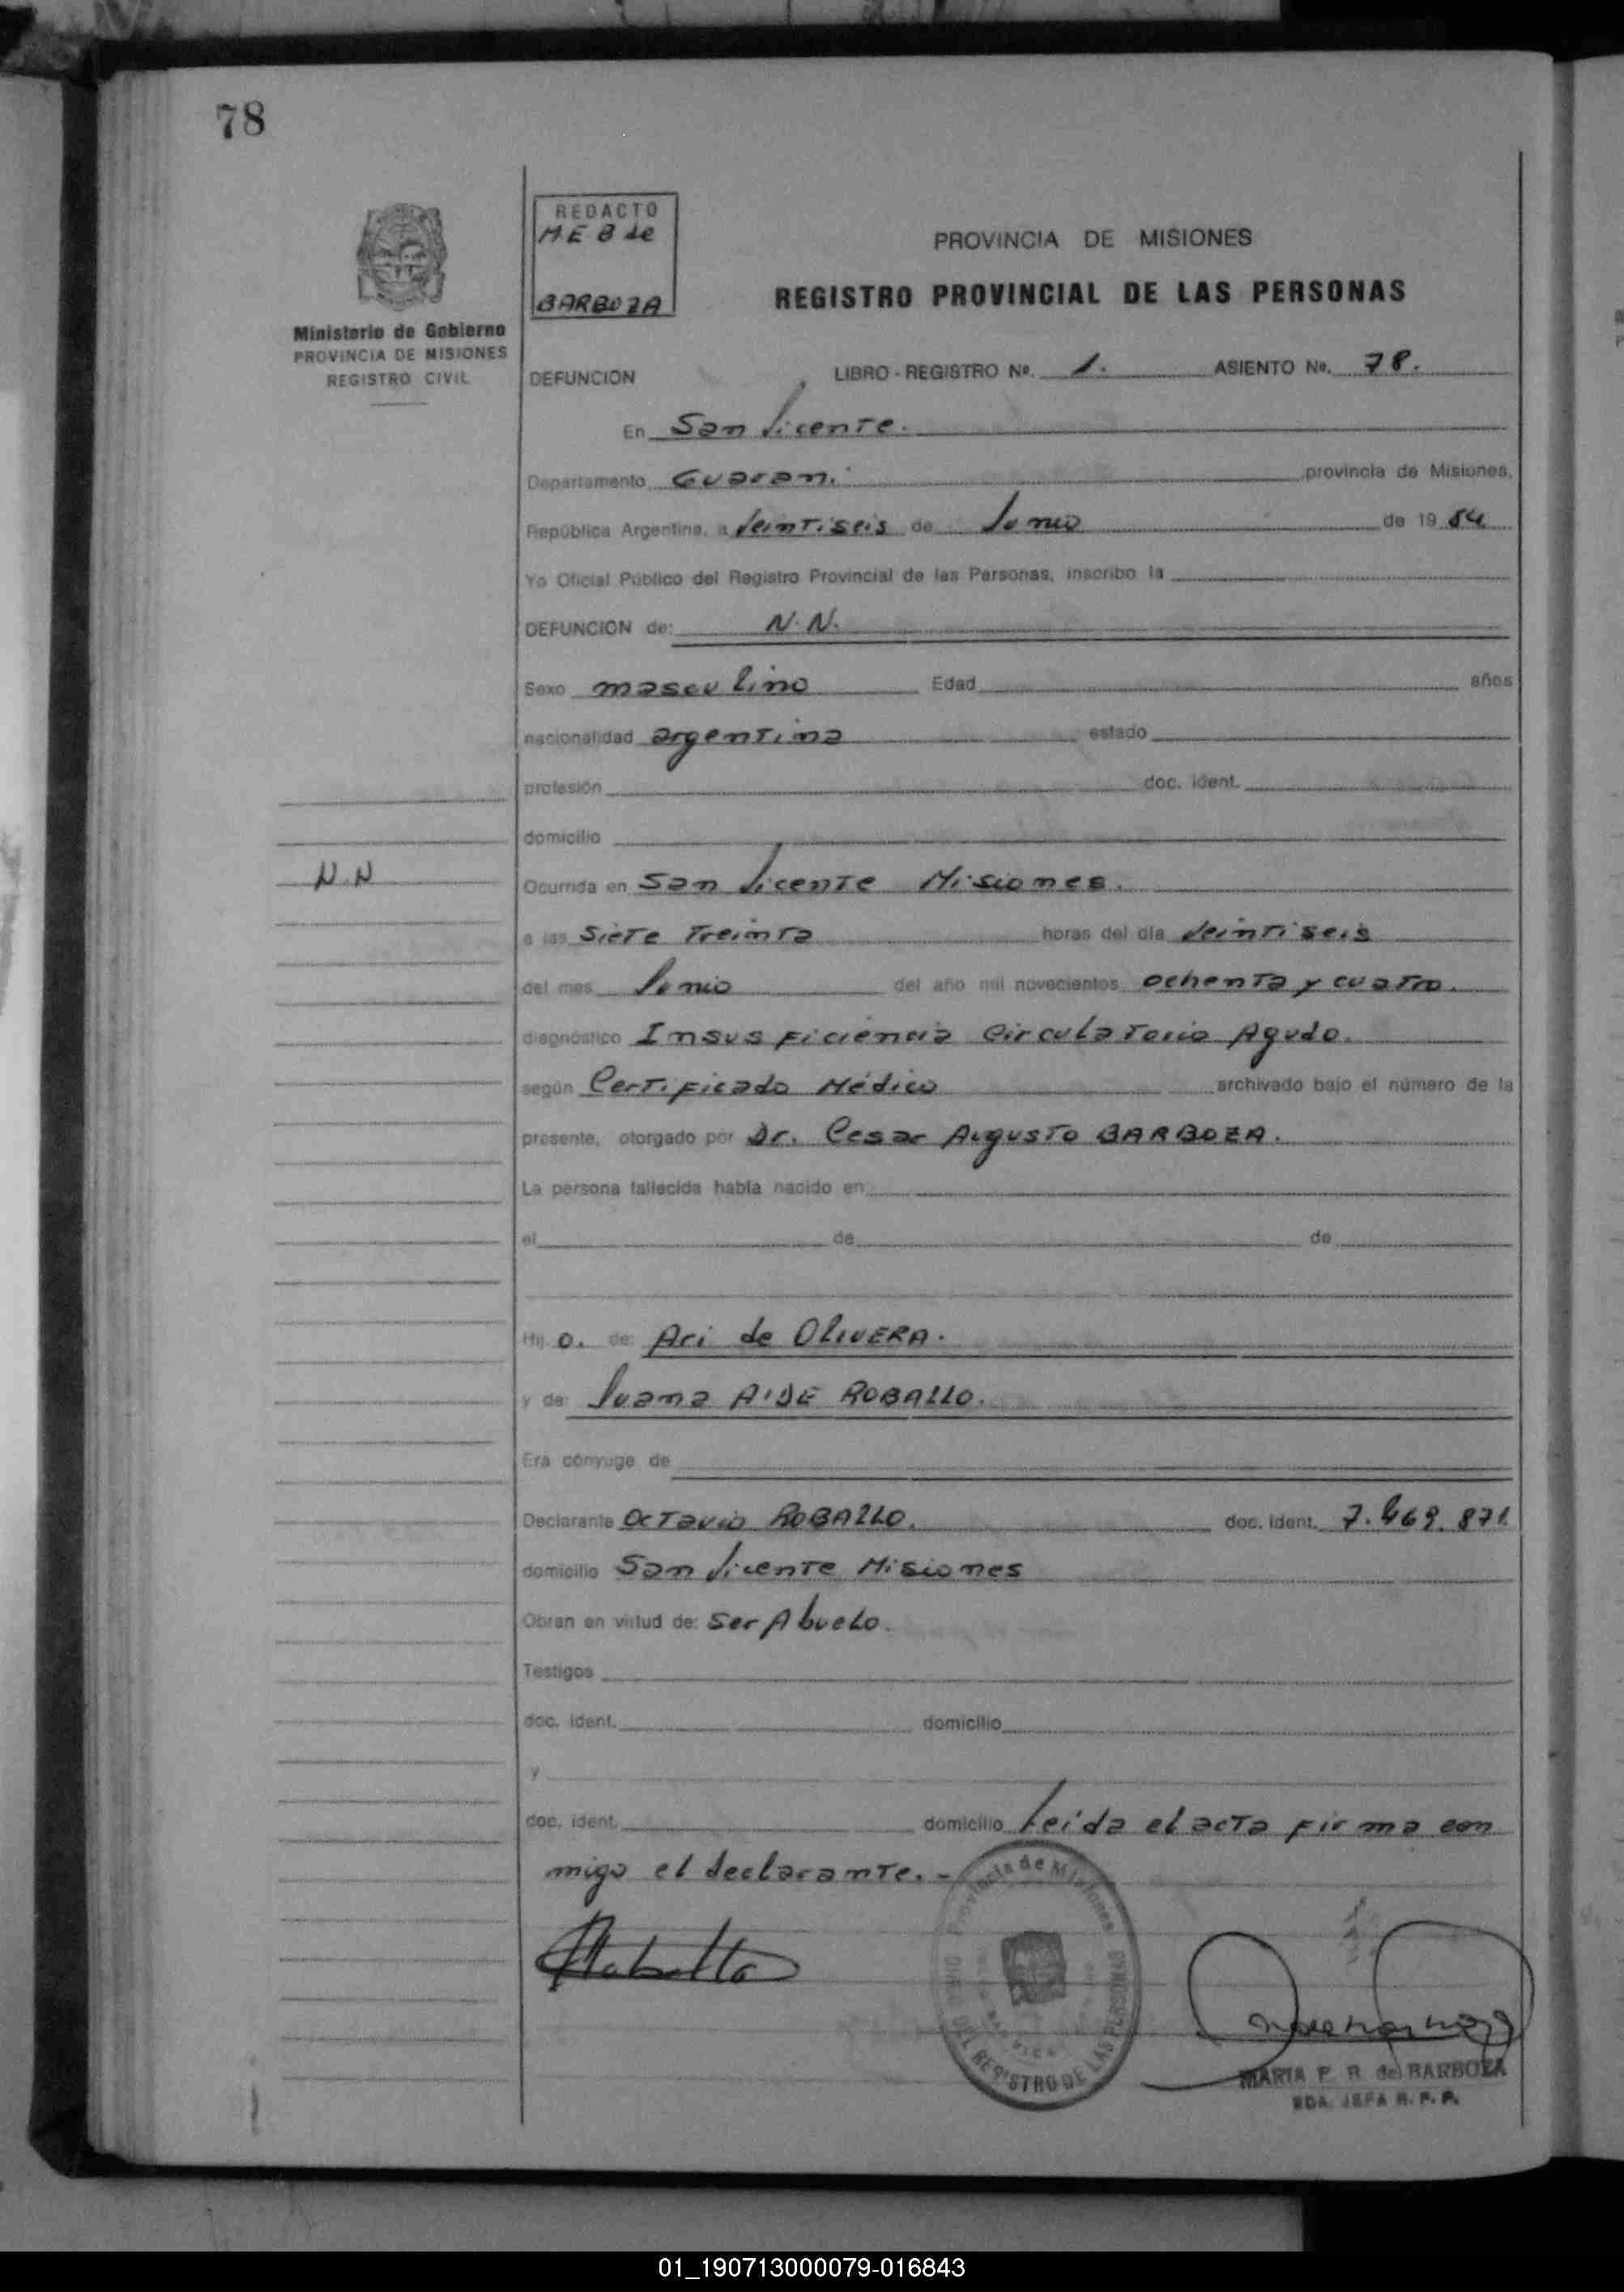 78
REDACTO
M E B de
BARBOZA
Ministerio de Gobierno
PROVINCIA DE MISIONES
REGISTRO CIVIL
PROVINCIA DE MISIONES
REGISTRO PROVINCIAL DE LAS PERSONAS
DEFUNCION LIBRO - REGISTRO Nº. 1. ASIENTO Nº. 78.
En San Vicente.
Departamento Guarani provincia de Misiones,
República Argentina, a Veintiseis de Junio de 19 84
Yo Oficial Público del Registro Provincial de las Personas, inscribo la
DEFUNCION de: N.N.
Sexo masculino Edad años
nacionalidad argentina estado
profesión doc. ident.
domicilio
N.N
Ocurrida en San Vicente Misiones.
a las Siete Treinta horas del día Veintiseis
del mes Junio del año mil novecientos ochenta y cuatro.
diagnóstico Insuficiencia Circulatoria Aguda.
según Certificado Médico archivado bajo el número de la
presente, otorgado por Dr. Cesar Augusto BARBOZA.
La persona fallecida había nacido en
el de de
Hij o. de: Ari de OLIVERA.
y de Juana AIDE ROBALLO.
Era cónyuge de
Declarante Octavio ROBALLO. doc. ident. 7.469.871
domicilio San Vicente Misiones
Obran en virtud de: Ser Abuelo.
Testigos
doc. ident. domicilio
y
doc. ident. domicilio Leida el acta firma con
migo el declarante.-
Provincia de Misiones
DEL REGISTRO DE LAS PERSONAS
MARIA E. B. de BARBOZA
JEFA R. P. P.
01_190713000079-016843